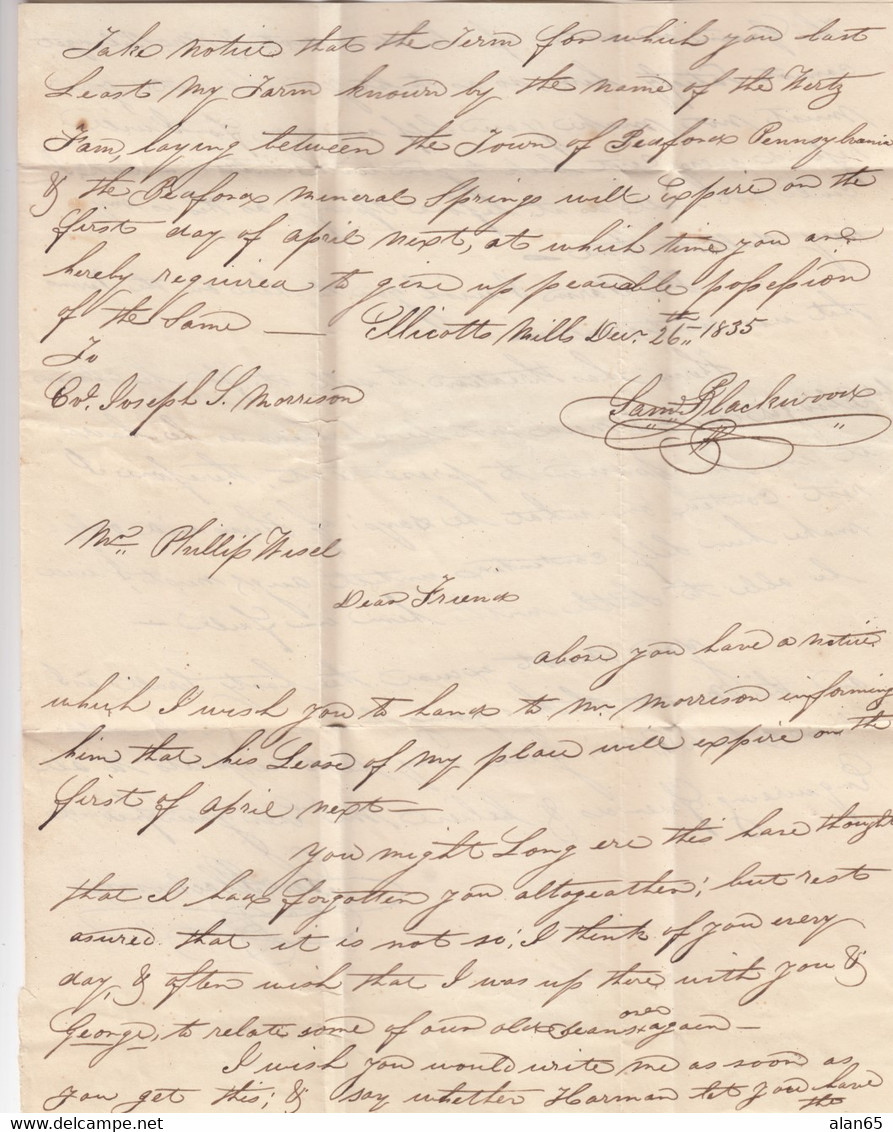 Take notice that the Term for which you last
Least my Farm known by the name of the Wertz
Fam, laying between the Town of Beaford Pennsylvania
& the Beaford mineral Springs will Expire on the
first day of april next, at which time you are
hereby required to give up peacable possession
of the Same — Ellicotts Mills Decr. 26th 1835
To
Col. Joseph S. Morrison
Saml. Blackwood
Mr. Phillip Wisel
Dear Friend
above you have a notice
which I wish you to hand to Mr. Morrison informing
him that his Lease of my place will expire on the
first of april next —
You might Long ere this have thought
that I had forgotten you altogeather; but rest
asured that it is not so; I think of you every
day, & often wish that I was up there with you &
George, to relate some of our old over again —
I wish you would write me as soon as
you get this; & say whether Harman let you have
the
alan65